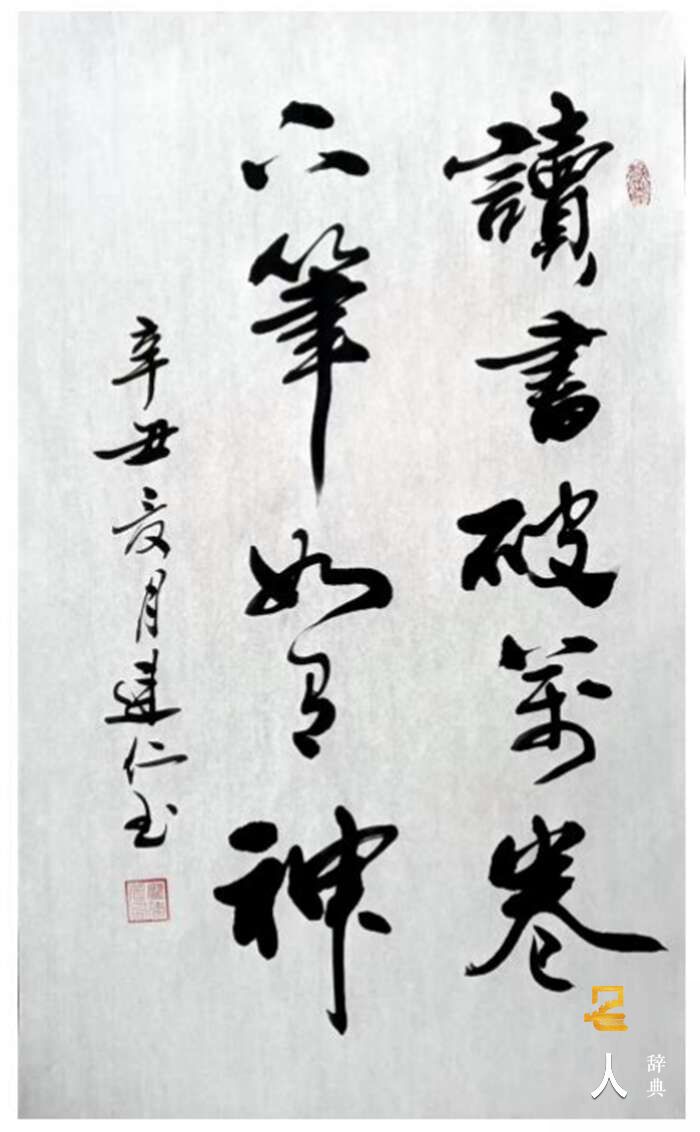 讀書破萬卷
下筆如有神
辛丑夏月建仁书
名人
辞典